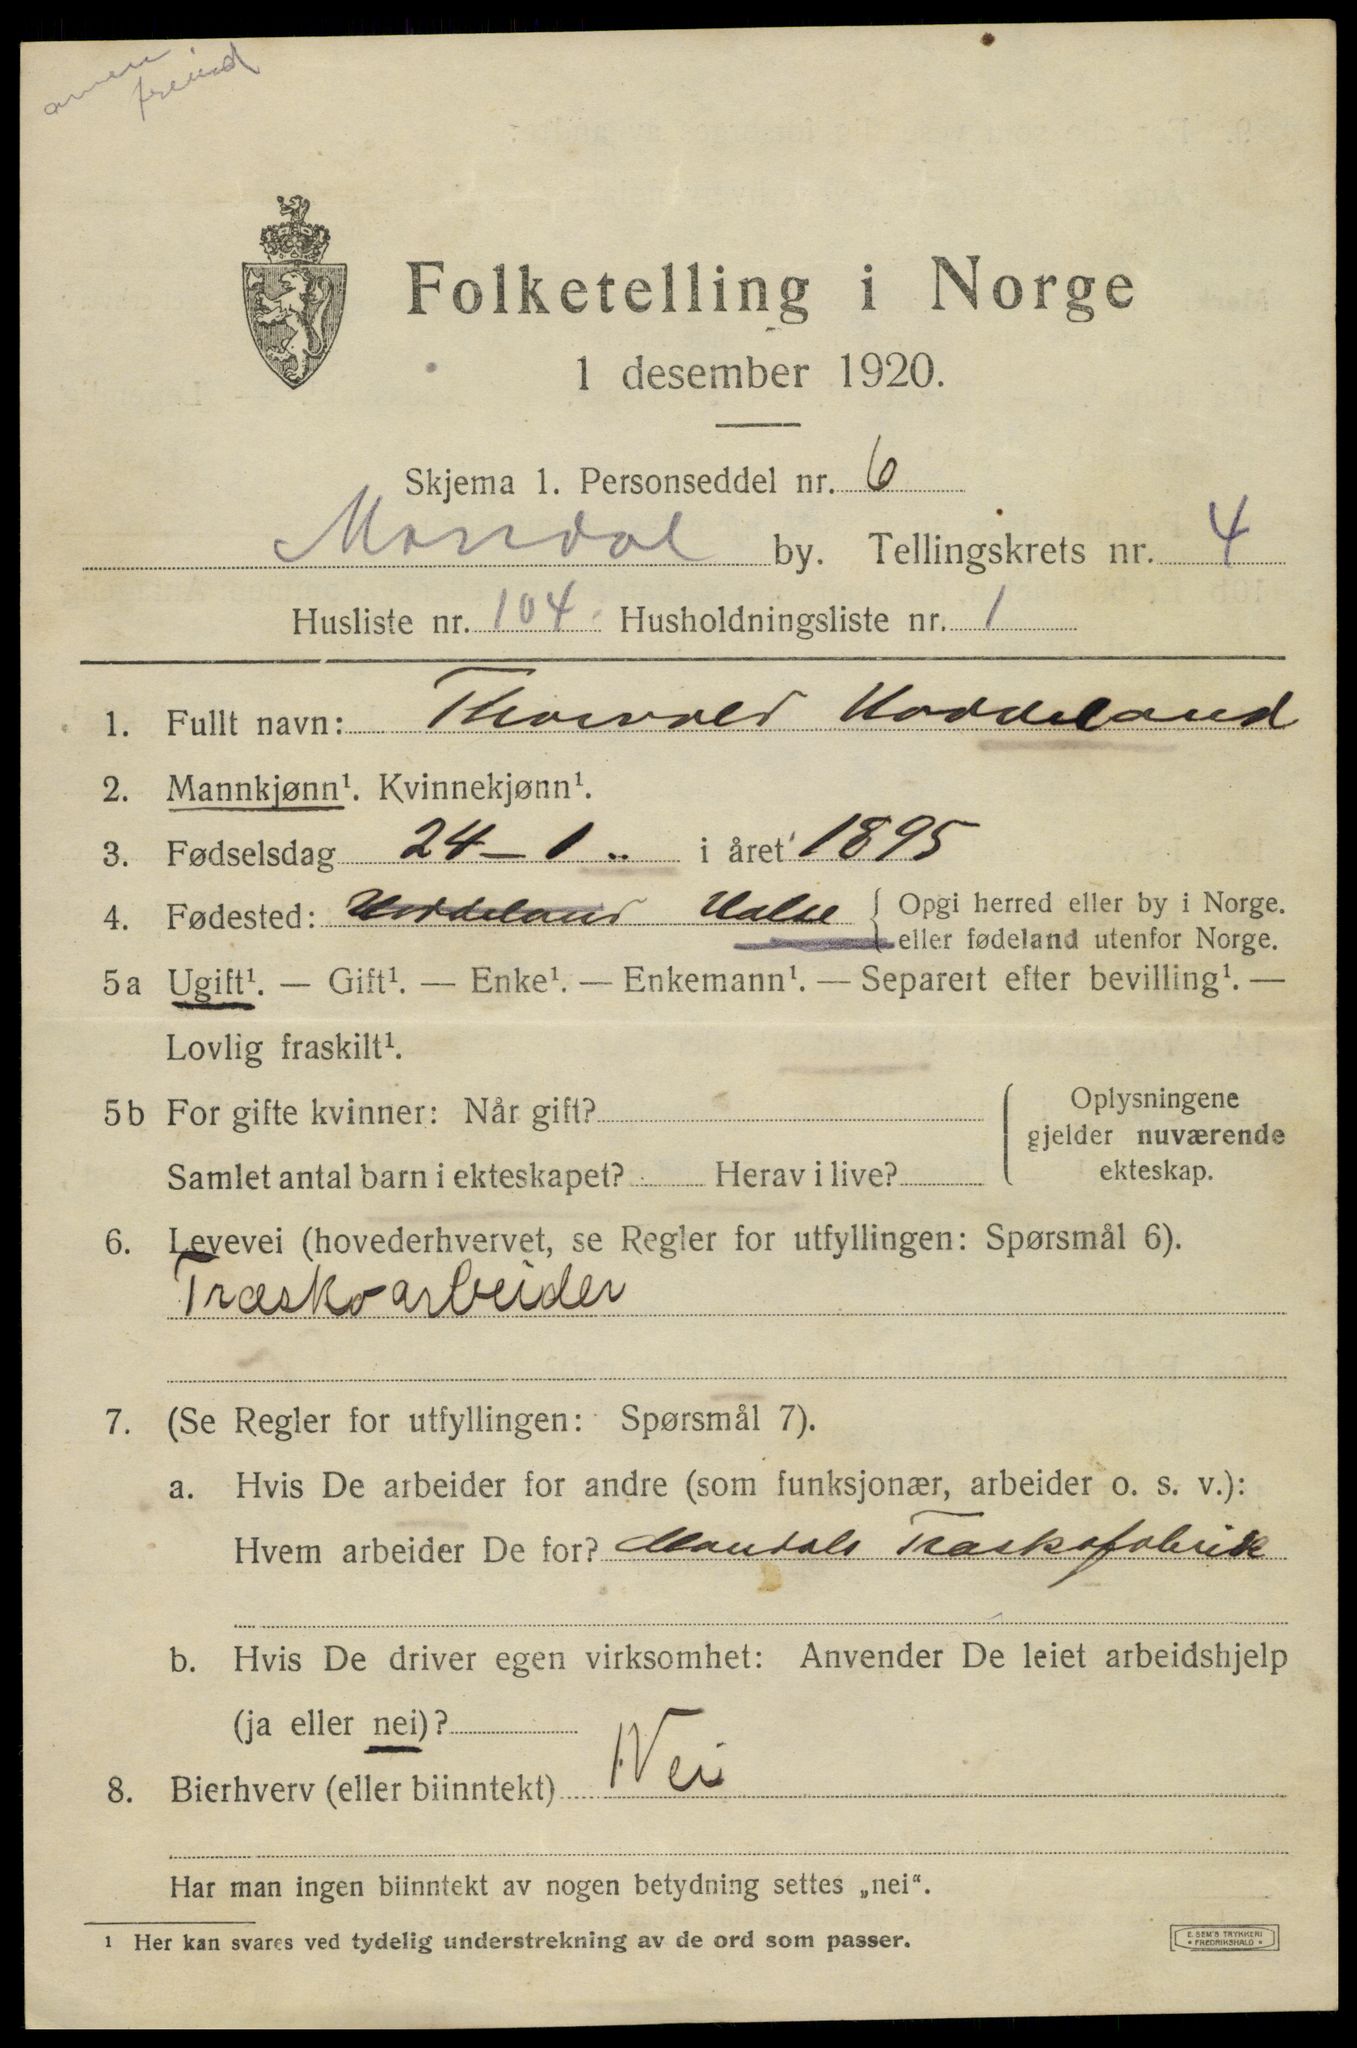 Folketelling i Norge
1 desember 1920.
Skjema 1. Personseddel nr. 6
Mandal by. Tellingskrets nr. 4
Husliste nr. 104 Husholdningsliste nr. 1
1. Fullt navn: Thorvald Hoddeland
2. Mannkjønn¹. Kvinnekjønn¹.
3. Fødselsdag 24-1 i året 1895
4. Fødested: Hoddeland Halse { Opgi herred eller by i Norge.
eller fødeland utenfor Norge.
5a Ugift¹. — Gift¹. — Enke¹. — Enkemann¹. — Separert efter bevilling¹. —
Lovlig fraskilt¹.
5b For gifte kvinner: Når gift?
Samlet antal barn i ekteskapet? Herav i live?
Oplysningene
gjelder nuværende
ekteskap.
6. Levevei (hovederhvervet, se Regler for utfyllingen: Spørsmål 6).
Træskoarbeider
7. (Se Regler for utfyllingen: Spørsmål 7).
a. Hvis De arbeider for andre (som funksjonær, arbeider o. s. v.):
Hvem arbeider De for? Mandals Træskofabrik
b. Hvis De driver egen virksomhet: Anvender De leiet arbeidshjelp
(ja eller nei)?
8. Bierhverv (eller biinntekt) Nei
Har man ingen biinntekt av nogen betydning settes „nei“.
¹ Her kan svares ved tydelig understrekning av de ord som passer.
E. SEM'S TRYKKERI
• FREDRIKSHALD •